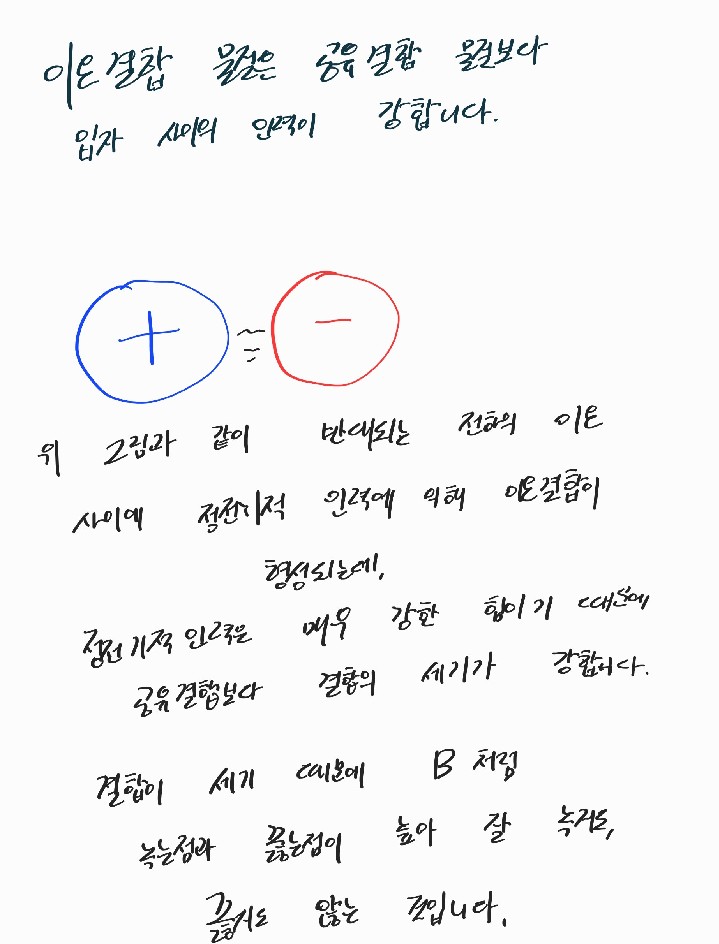 이온결합 물질은 공유결합 물질보다
입자 사이의 인력이 강합니다.
+ −
위 그림과 같이 반대되는 전하의 이온
사이에 정전기적 인력에 의해 이온결합이
형성되는데,
정전기적 인력은 매우 강한 힘이기 때문에
공유결합보다 결합의 세기가 강합니다.
결합이 세기 때문에 B처럼
녹는점과 끓는점이 높아 잘 녹지도,
끓지도 않는 것입니다.